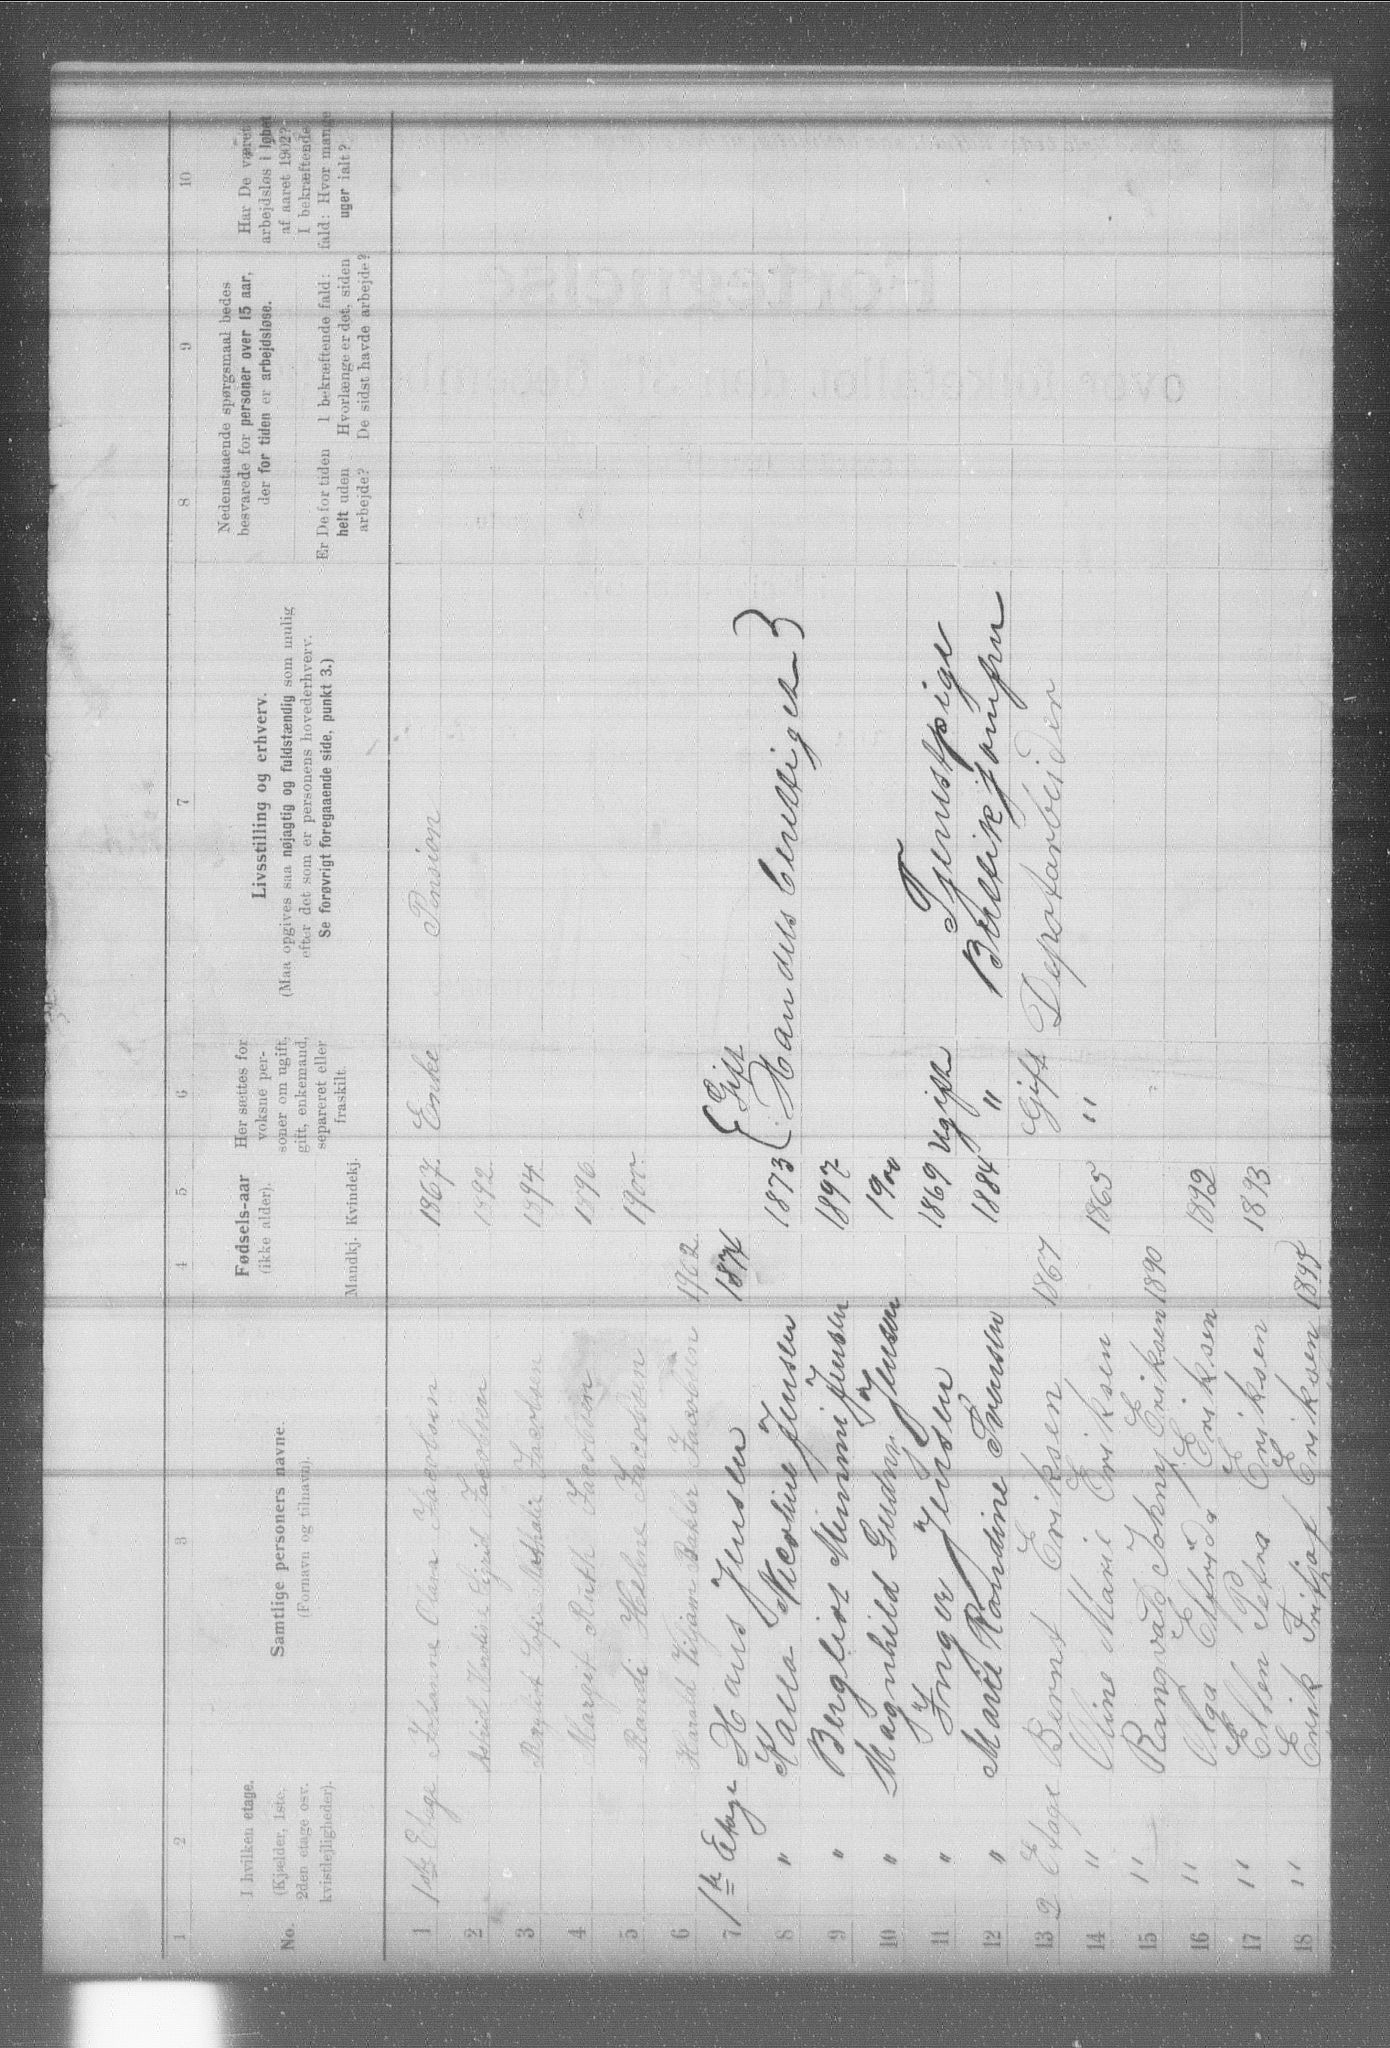 1 2 3 4 5 6 7 8 9 10
No.
I hvilken etage.
(Kjælder, 1ste.
2den etage osv.
kvistlejligheder).
Samtlige personers navne.
(Fornavn og tilnavn).
Fødsels-aar
(ikke alder).
Mandkj. Kvindekj.
Her sættes for
voksne per-
soner om ugift,
gift, enkemand,
separeret eller
fraskilt.
Livsstilling og erhverv.
(Maa opgives saa nøjagtig og fuldstændig som mulig
efter det som er personens hovederhverv.
Se forøvrigt foregaaende side, punkt 3.)
Nedenstaaende spørgsmaal bedes
besvarede for personer over 15 aar,
der for tiden er arbejdsløse.
Er De for tiden
helt uden
arbejde?
I bekræftende fald:
Hvorlænge er det, siden
De sidst havde arbejde?
Har De været
arbejdsløs i løbet
af aaret 1902?
I bekræftende
fald: Hvor mange
uger ialt?
1 1ste Etage Johanne Olava Jacobsen 1867. Enke Pension
2 Astrid Sigrid Jacobsen 1892
3 Sofie Mathalie Jacobsen 1894
4 Margit Ruth Jacobsen 1896
5 Randi Helene Jacobsen 1900
6 Harald Viljam Jacobsen 1902
7 1ste Etage Hans Jensen 1874 {Gift
8 " Kalla Nicoline Jensen 1873 Handels berettiget }
9 " Bergliot Mimmi Jensen 1897
10 " Magnhild Gudny Jensen 1900
11 " Inga Jensen 1869 Ugift Tjenstpige
12 " Marie Randine Svensen 1884 " Butikjomfru
13 2 Etage Bernt Eriksen 1867 Gift Depotarbeider
14 " Oline Marie Eriksen 1865 "
15 " Rangvald Johny Eriksen 1890
16 " Olga Elfrida Eriksen 1892
17 " Ellen Petra Eriksen 1893
18 " Erik Fritjof Eriksen 1895